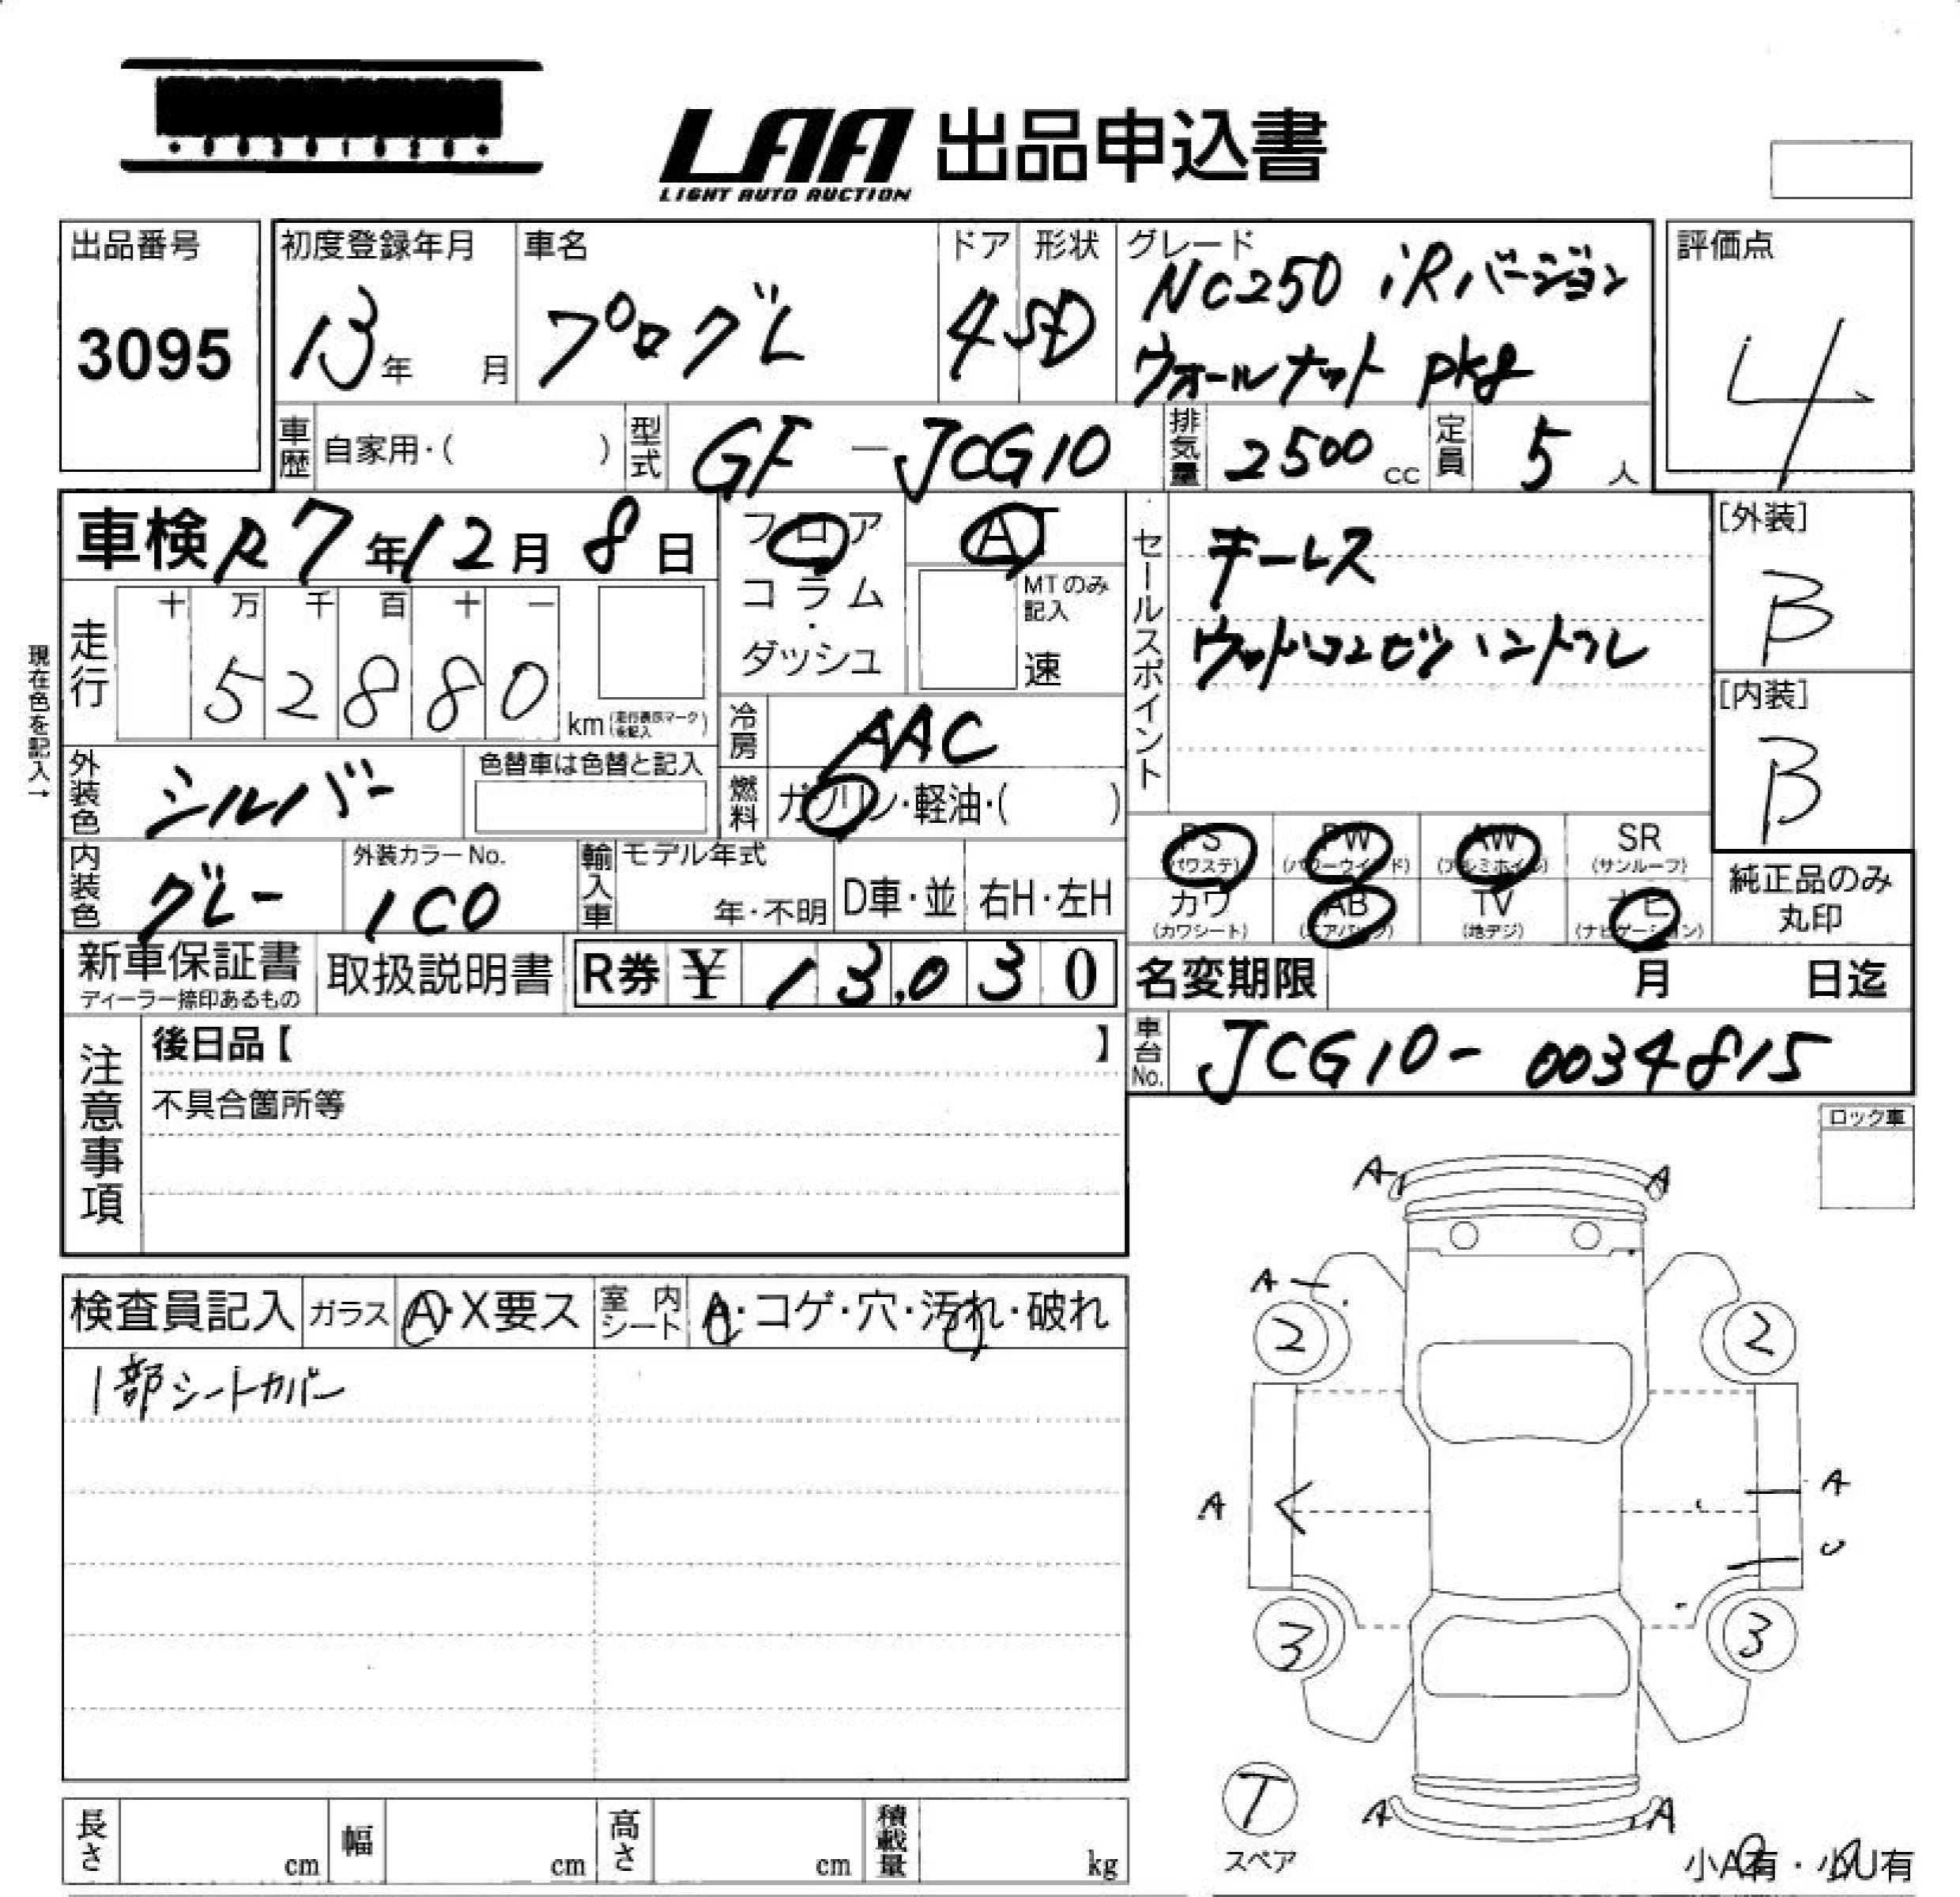 LAA 出品申込書
LIGHT AUTO AUCTION
出品番号
3095
初度登録年月
13年 月
車名
プログレ
ドア
4
形状
SD
グレード
NC250 iRバージョン
ウォールナット pkg
評価点
4
車歴 自家用・( )
型式 GF-JCG10
排気量 2500 cc
定員 5 人
車検 R7年12月8日
フロア
コラム・
ダッシュ
AT
MTのみ
記入
速
セールスポイント
キーレス
ウッドコンビハンドル
[外装]
B
[内装]
B
現在色を記入→
走行
十 万 千 百 十 一
52880
km (走行表示マークを記入)
冷房 AAC
燃料 ガソリン・軽油・( )
外装色 シルバー
色替車は色替と記入
内装色 グレー
外装カラーNo.
1C0
輸入車
モデル年式
年・不明
D車・並
右H・左H
PS (パワステ)
PW (パワーウインド)
AW (アルミホイル)
SR (サンルーフ)
カワ (カワシート)
AB (エアバック)
TV (地デジ)
ナビ (ナビゲーション)
純正品のみ
丸印
新車保証書
ディーラー捺印あるもの
取扱説明書
R券 ¥ 13,030
名変期限 月 日迄
車台No. JCG10-0034815
注意事項
後日品【 】
不具合箇所等
ロック車
検査員記入
ガラス A・X要ス
室内シート A・コゲ・穴・汚れ・破れ
1部シートカバー
A A
A
2 2
A A
U
3 3
T
スペア
A A
小A有・小U有
長さ cm
幅 cm
高さ cm
積載量 kg